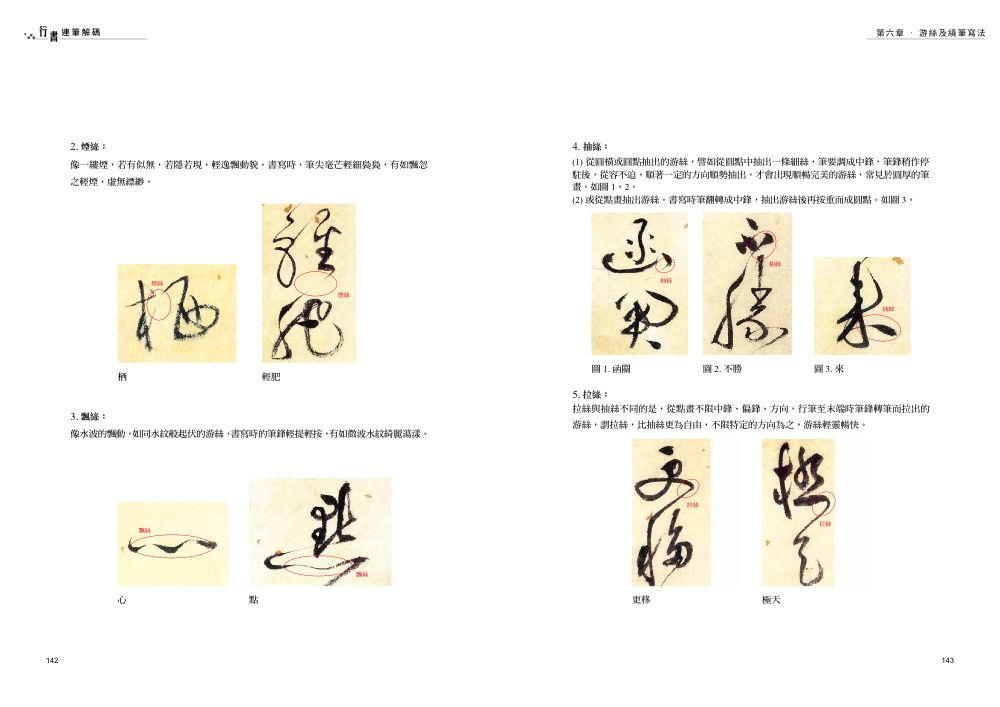 行書 連筆解碼
2. 煙絲：
像一縷煙，若有似無，若隱若現，輕逸飄動貌。書寫時，筆尖毫芒輕細裊裊，有如飄忽
之輕煙，虛無縹緲。
煙絲
煙絲
栖
輕肥
3. 飄絲：
像水波的飄動，如同水紋般起伏的游絲，書寫時的筆鋒輕提輕按，有如微波水紋綺麗蕩漾。
飄絲
飄絲
心
點
142
第六章 · 游絲及繞筆寫法
4. 抽絲：
(1) 從圓橫或圓點抽出的游絲，譬如從圓點中抽出一條細絲，筆要調成中鋒，筆鋒稍作停
駐後，從容不迫，順著一定的方向順勢抽出，才會出現順暢完美的游絲，常見於圓厚的筆
畫，如圖 1、2。
(2) 或從點畫抽出游絲。書寫時筆翻轉成中鋒，抽出游絲後再按重而成圓點。如圖 3。
抽絲
抽絲
抽絲
圖 1. 函關
圖 2. 不勝
圖 3. 來
5. 拉絲：
拉絲與抽絲不同的是，從點畫不限中鋒、偏鋒、方向，行筆至末端時筆鋒轉筆而拉出的
游絲，謂拉絲，比抽絲更為自由，不限特定的方向為之，游絲輕靈暢快。
拉絲
拉絲
更移
極天
143